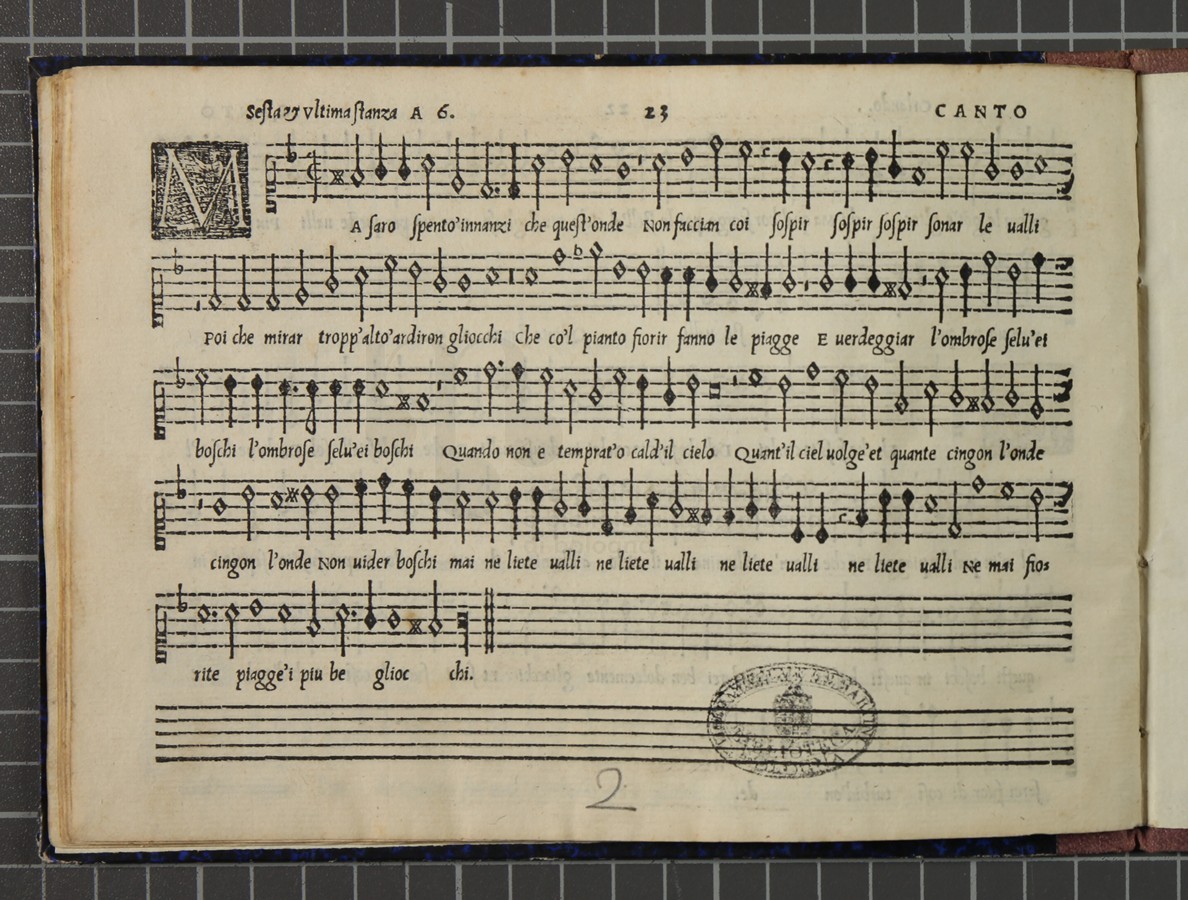 Sesta & Vltima stanza A 6. 23 CANTO
MA saro spento'innanzi che quest'onde Non faccian coi sospir sospir sospir sonar le ualli
Poi che mirar tropp'alto'ardiron gliocchi Che co'l pianto fiorir fanno le piagge E uerdeggiar l'ombrose selu'ei
boschi l'ombrose selu'ei boschi Quando non e temprat'o cald'il cielo Quant'il ciel uolge'et quante cingon l'onde
cingon l'onde Non uider boschi mai ne liete ualli ne liete ualli ne liete ualli ne liete ualli Ne mai fio=
rite piagge'i piu be glioc chi.
BIBLIOTECA
2